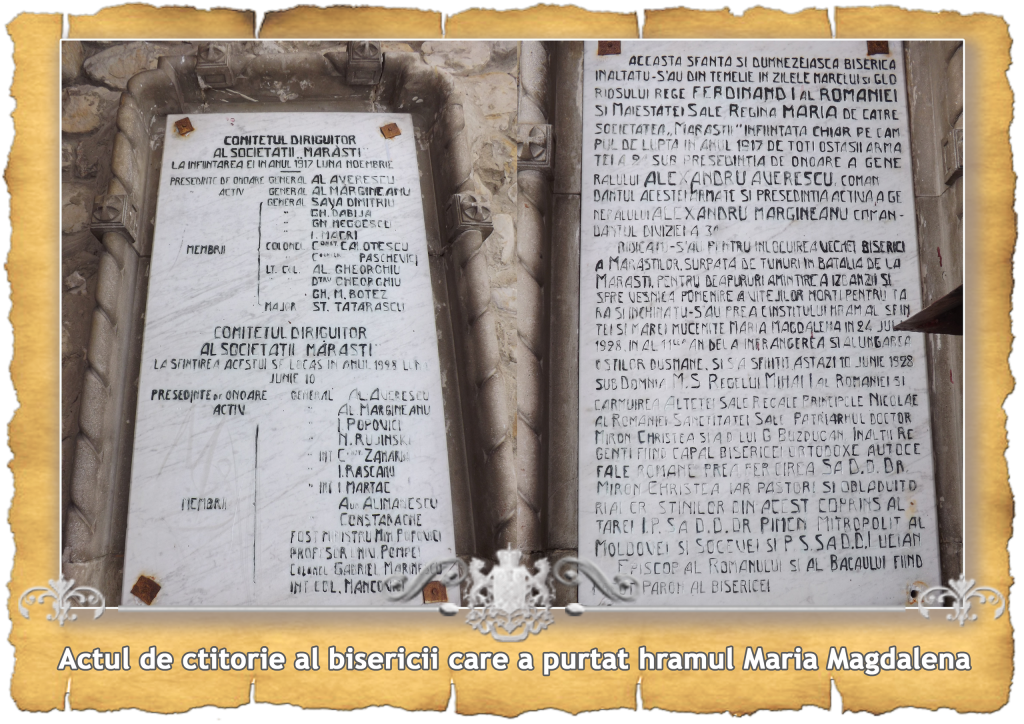 COMITETUL DIRIGUITOR
AL SOCIETATII "MARASTI"
LA INFIINTAREA EI IN ANUL 1917 LUNA NOEMBRIE
PRESEDINTE DE ONOARE GENERAL AL AVERESCU
ACTIV GENERAL AL MARGINEANU
GENERAL SAVA DIMITRIU
" GH. DABIJA
" GN NEGOESCU
" I. MACRI
MEMBRII COLONEL CALOTESCU
" PASCHEVICI
LT. COL. AL. GHEORGHIU
" DTRU GHEORGHIU
" GH. M. BOTEZ
MAJOR ST. TATARASCU
COMITETUL DIRIGUITOR
AL SOCIETATII MĂRASTI"
LA SFINTIREA ACESTUI SF LOCAS IN ANUL 1928 LUNA
JUNIE 10
PRESEDINTE DE ONOARE GENERAL AL AVERESCU
ACTIV " AL MARGINEANU
" I POPOVICI
" N. RUJINSKI
" INT ZAHARIA
" I. RASCANU
" INT I MARTAC
MEMBRII AUR ALIMANESCU
CONSTANACHE
FOST MINISTRU MIH POPOVICI
PROFESOR POMPEI
COLONEL GABRIEL MARINESCU
INT COL. MANCOVICI
ACEASTA SFANTA SI DUMNEZEIASCA BISERICA
INALTATU-S'AU DIN TEMELIE IN ZILELE MARELUI SI GLO
RIOSULUI REGE FERDINAND I AL ROMANIEI
SI MAIESTATEI SALE REGINA MARIA DE CATRE
SOCIETATEA „MARASTI" INFIINTATA CHIAR PE CAM
PUL DE LUPTA IN ANUL 1917 DE TOTI OSTASII ARMA
TEI A 2ª SUB PRESEDINTIA DE ONOARE A GENE
RALULUI ALEXANDRU AVERESCU, COMAN
DANTUL ACESTEI ARMATE SI PRESEDINTIA ACTIVA A GE
NERALULUI ALEXANDRU MARGINEANU COMAN-
DANTUL DIVIZIEI A 3ª
RIDICAT-S'AU PENTRU INLOCUIREA VECHEI BISERICI
A MARASTILOR, SURPATA DE TUNURI IN BATALIA DE LA
MARASTI, PENTRU DEAPURURI AMINTIRE A IZBANZII SI
SPRE VESNICA POMENIRE A VITEJILOR MORTI PENTRU TA
RA SI INCHINATU-S'AU PREA CINSTITULUI HRAM AL SFIN
TEI SI MAREI MUCENITE MARIA MAGDALENA IN 24
1928, IN AL 11LEA AN DELA INFRANGEREA SI ALUNGAREA
OSTILOR DUSMANE, SI S'A SFINTIT ASTAZI 10 JUNIE 1928
SUB DOMNIA M.S REGELUI MIHAI I AL ROMANIEI SI
CARMUIREA ALTETEI SALE REGALE PRINCIPELE NICOLAE
AL ROMANIEI SANCTITATEI SALE PATRIARHUL DOCTOR
MIRON CHRISTEA SI A D LUI G BUZDUGAN, INALTII RE
GENTI FIIND CAPAL BISERICEI ORTODOXE AUTOCE
FALE ROMANE PREA FERICIREA SA D.D. DR.
MIRON CHRISTEA, IAR PASTORI SI OBLADUITO
RI AI CRESTINILOR DIN ACEST COPRINS AL
TAREI I.P. S A D.D. DR PIMEN MITROPOLIT AL
MOLDOVEI SI SUCEVEI SI P.S. SA D.D. LUCIAN
EPISCOP AL ROMANULUI SI AL BACAULUI FIIND
PATRON AL BISERICEI
Actul de ctitorie al bisericii care a purtat hramul Maria Magdalena